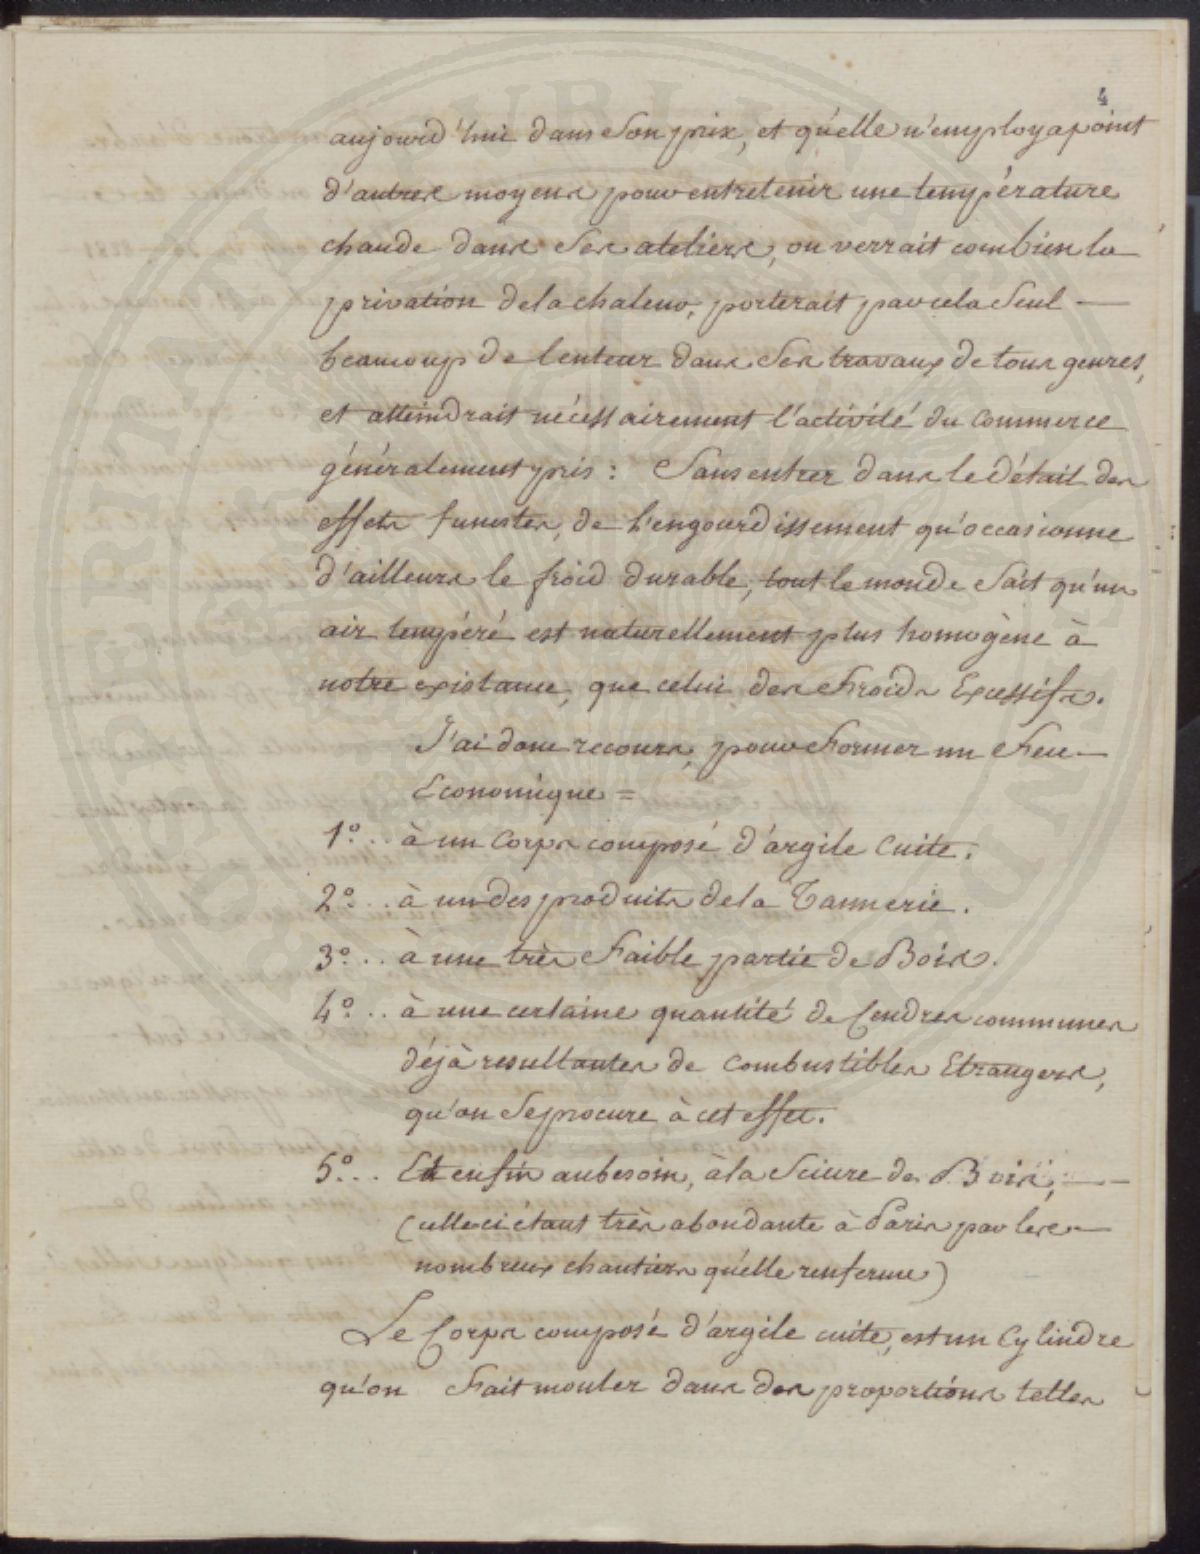 4
aujourd'hui dans son prix, et qu'elle n'employa point
d'autres moyens pour entretenir une température
chaude dans ses ateliers, on verrait combien la
privation de la chaleur, porterait par cela seul —
beaucoup de lenteur dans ses travaux de tous genres,
et atteindrait nécessairement l'activité du Commerce
généralement pris : Sans entrer dans le détail des
effets funestes, de l'engourdissement qu'occasionne
d'ailleurs le froid durable, tout le monde sait qu'un
air tempéré est naturellement plus homogène à
notre existance, que celui des Froids Excessifs.
J'ai donc recours, pour Former un Feu —
Economique =
1º. . . à un Corps composé d'argile Cuite.
2º. . . à un des produits de la Tannerie.
3º. . . à une très Faible partie de Bois.
4º. . . à une certaine quantité de Cendres communes
déjà resultantes de Combustibles Etrangers,
qu'on se procure à cet effet.
5º. . . Et enfin au besoin, à la Sciure de Bois, —
(celle ci étant très abondante à Paris par les —
nombreux chantiers qu'elle renferme)
Le Corps composé d'argile cuite, est un Cylindre
qu'on Fait mouler dans des proportions telles